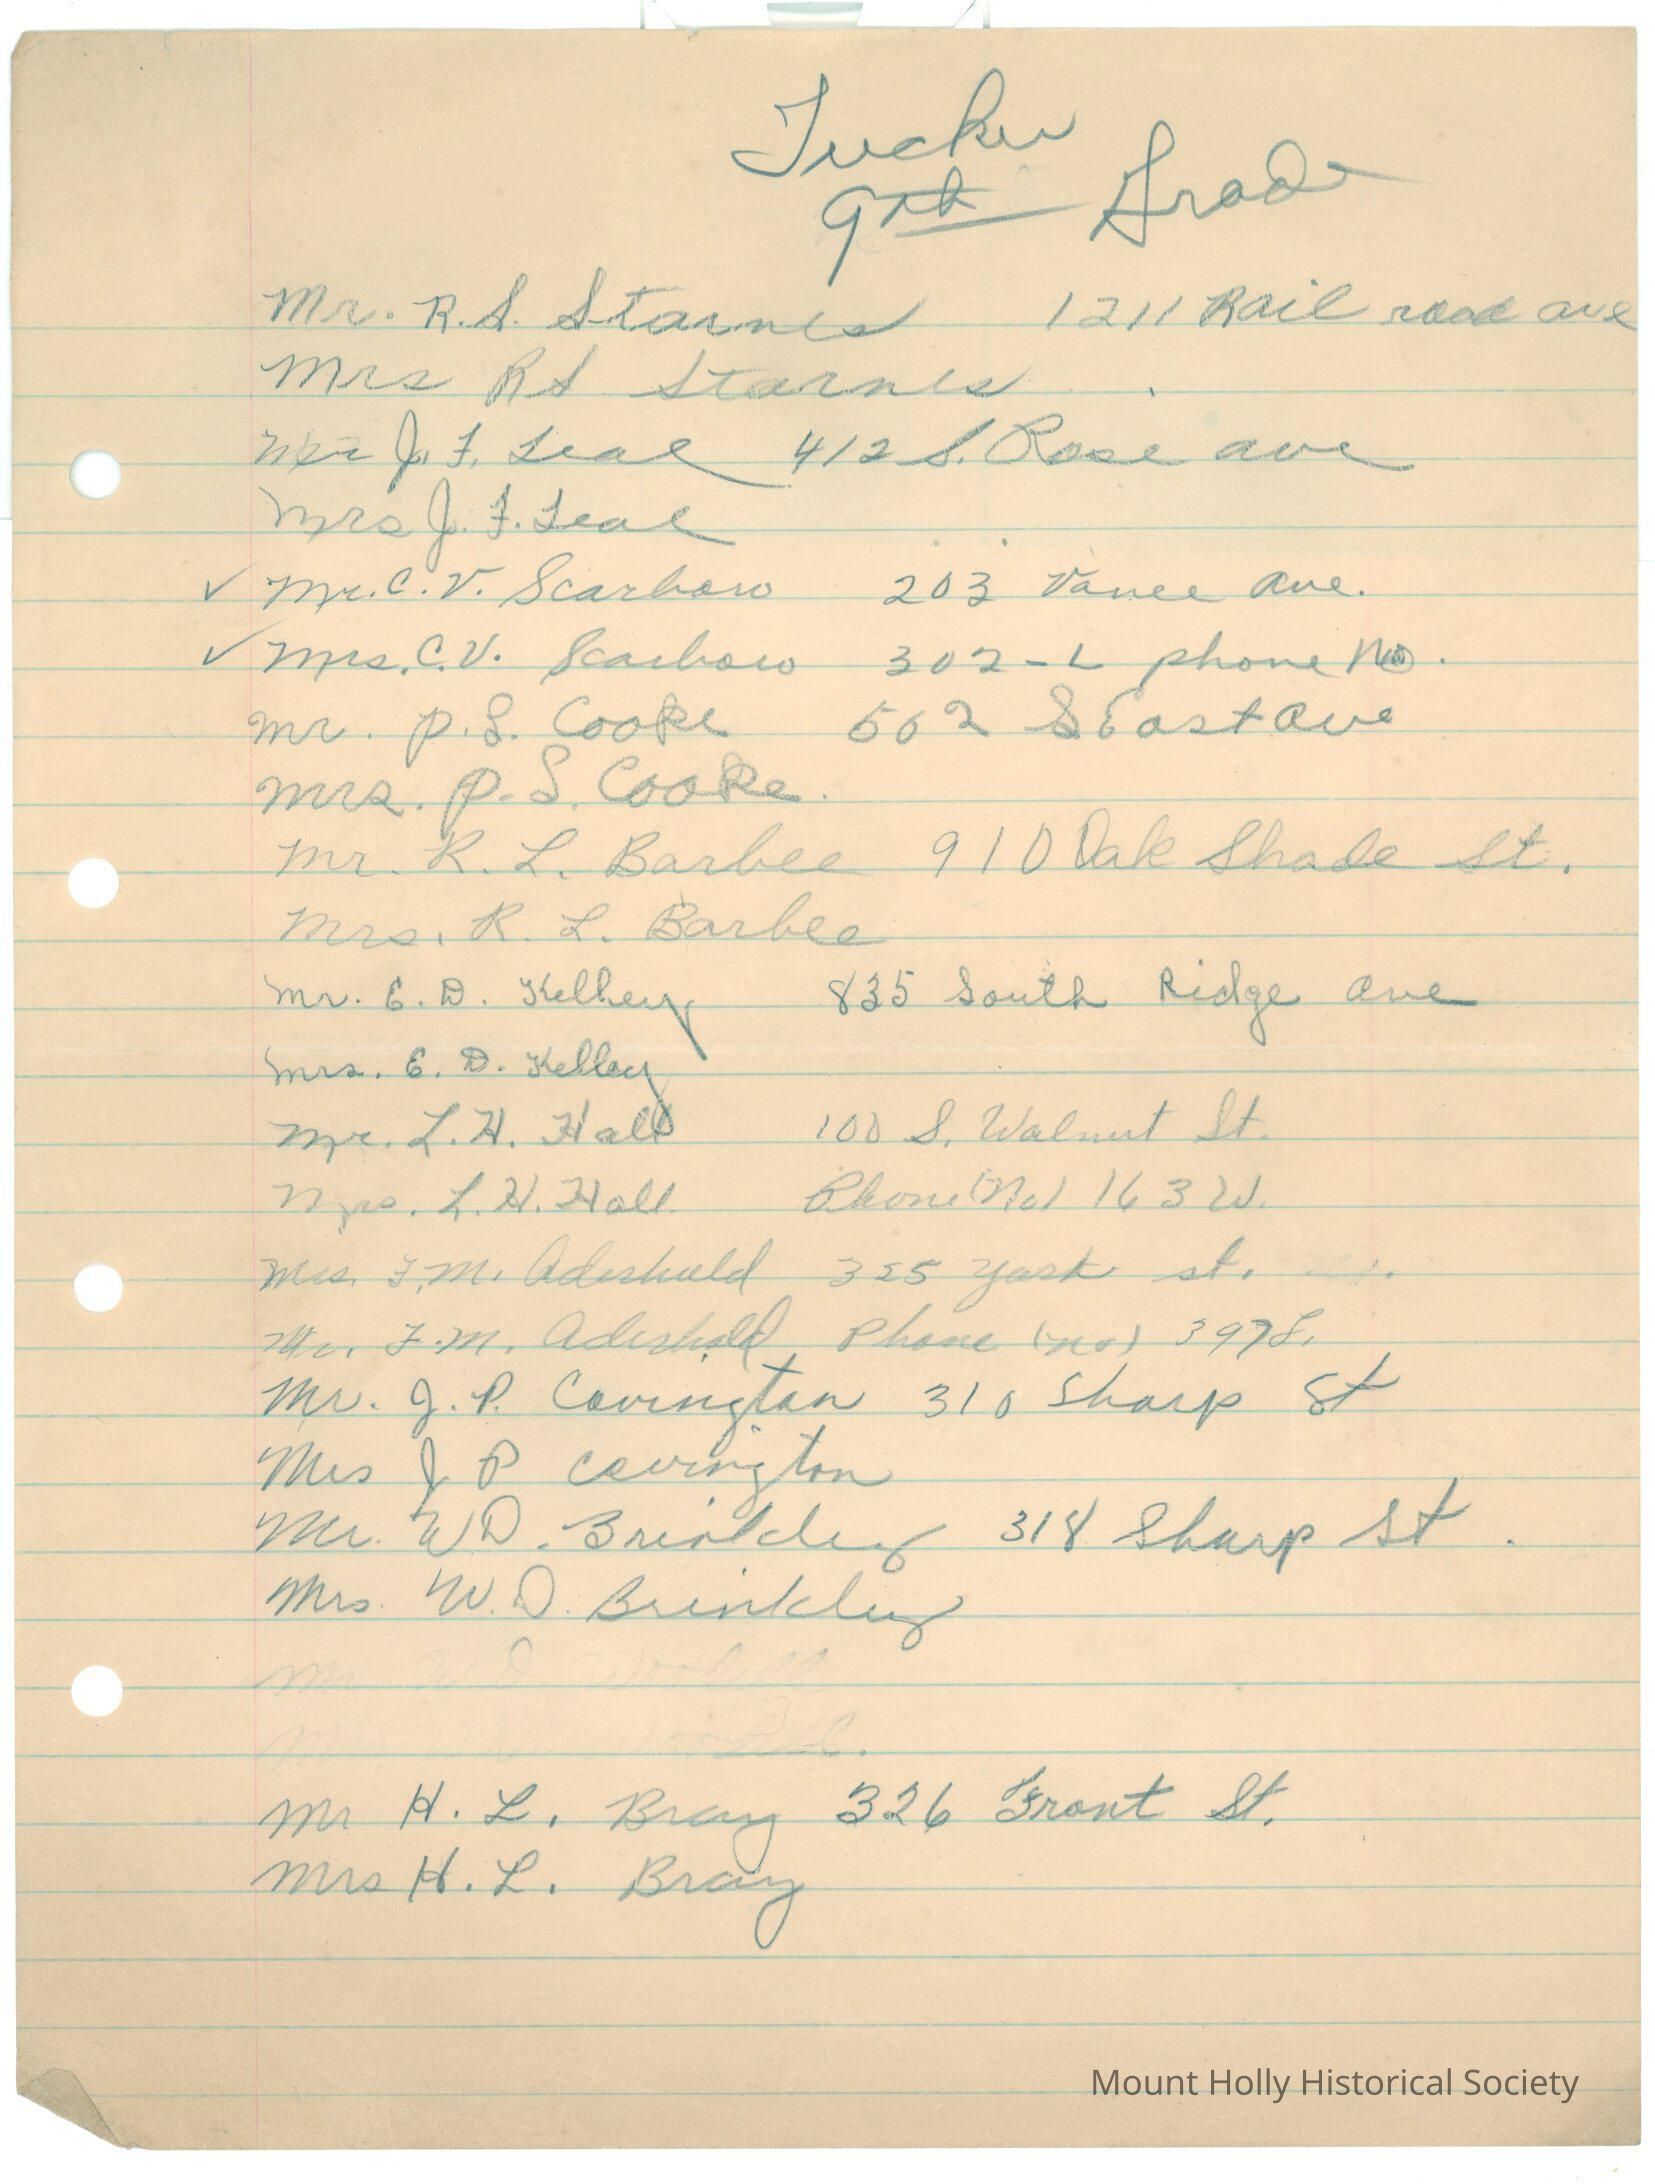 Tucker
9th Grade
Mr. R. S. Starnes 1211 Rail road ave
Mrs R S Starnes
Mr J. F. Leal 412 S. Rose ave
Mrs J. F. Leal
✓ Mr. C. V. Scarboro 203 Vance Ave.
✓ Mrs. C. V. Scarboro 302-L phone No.
Mr. P. S. Cooke 502 S East Ave
Mrs. P. S. Cooke.
Mr. R. L. Barbee 910 Oak Shade St.
Mrs. R. L. Barbee
Mr. E. D. Kelley 835 South Ridge Ave
Mrs. E. D. Kelley
Mr. L. H. Hall 100 S. Walnut St.
Mrs. L. H. Hall Phone (No) 163 W.
Mrs. F. M. Aderhold 325 York st.
Mr. F. M. Aderhold Phone (no) 397L.
Mr. J. P. Covington 310 Sharp St
Mrs J P Covington
Mr. W D. Brinkley 318 Sharp St.
Mrs. W. D. Brinkley
Mr H. L. Bray 326 Front St.
Mrs H. L. Bray
Mount Holly Historical Society